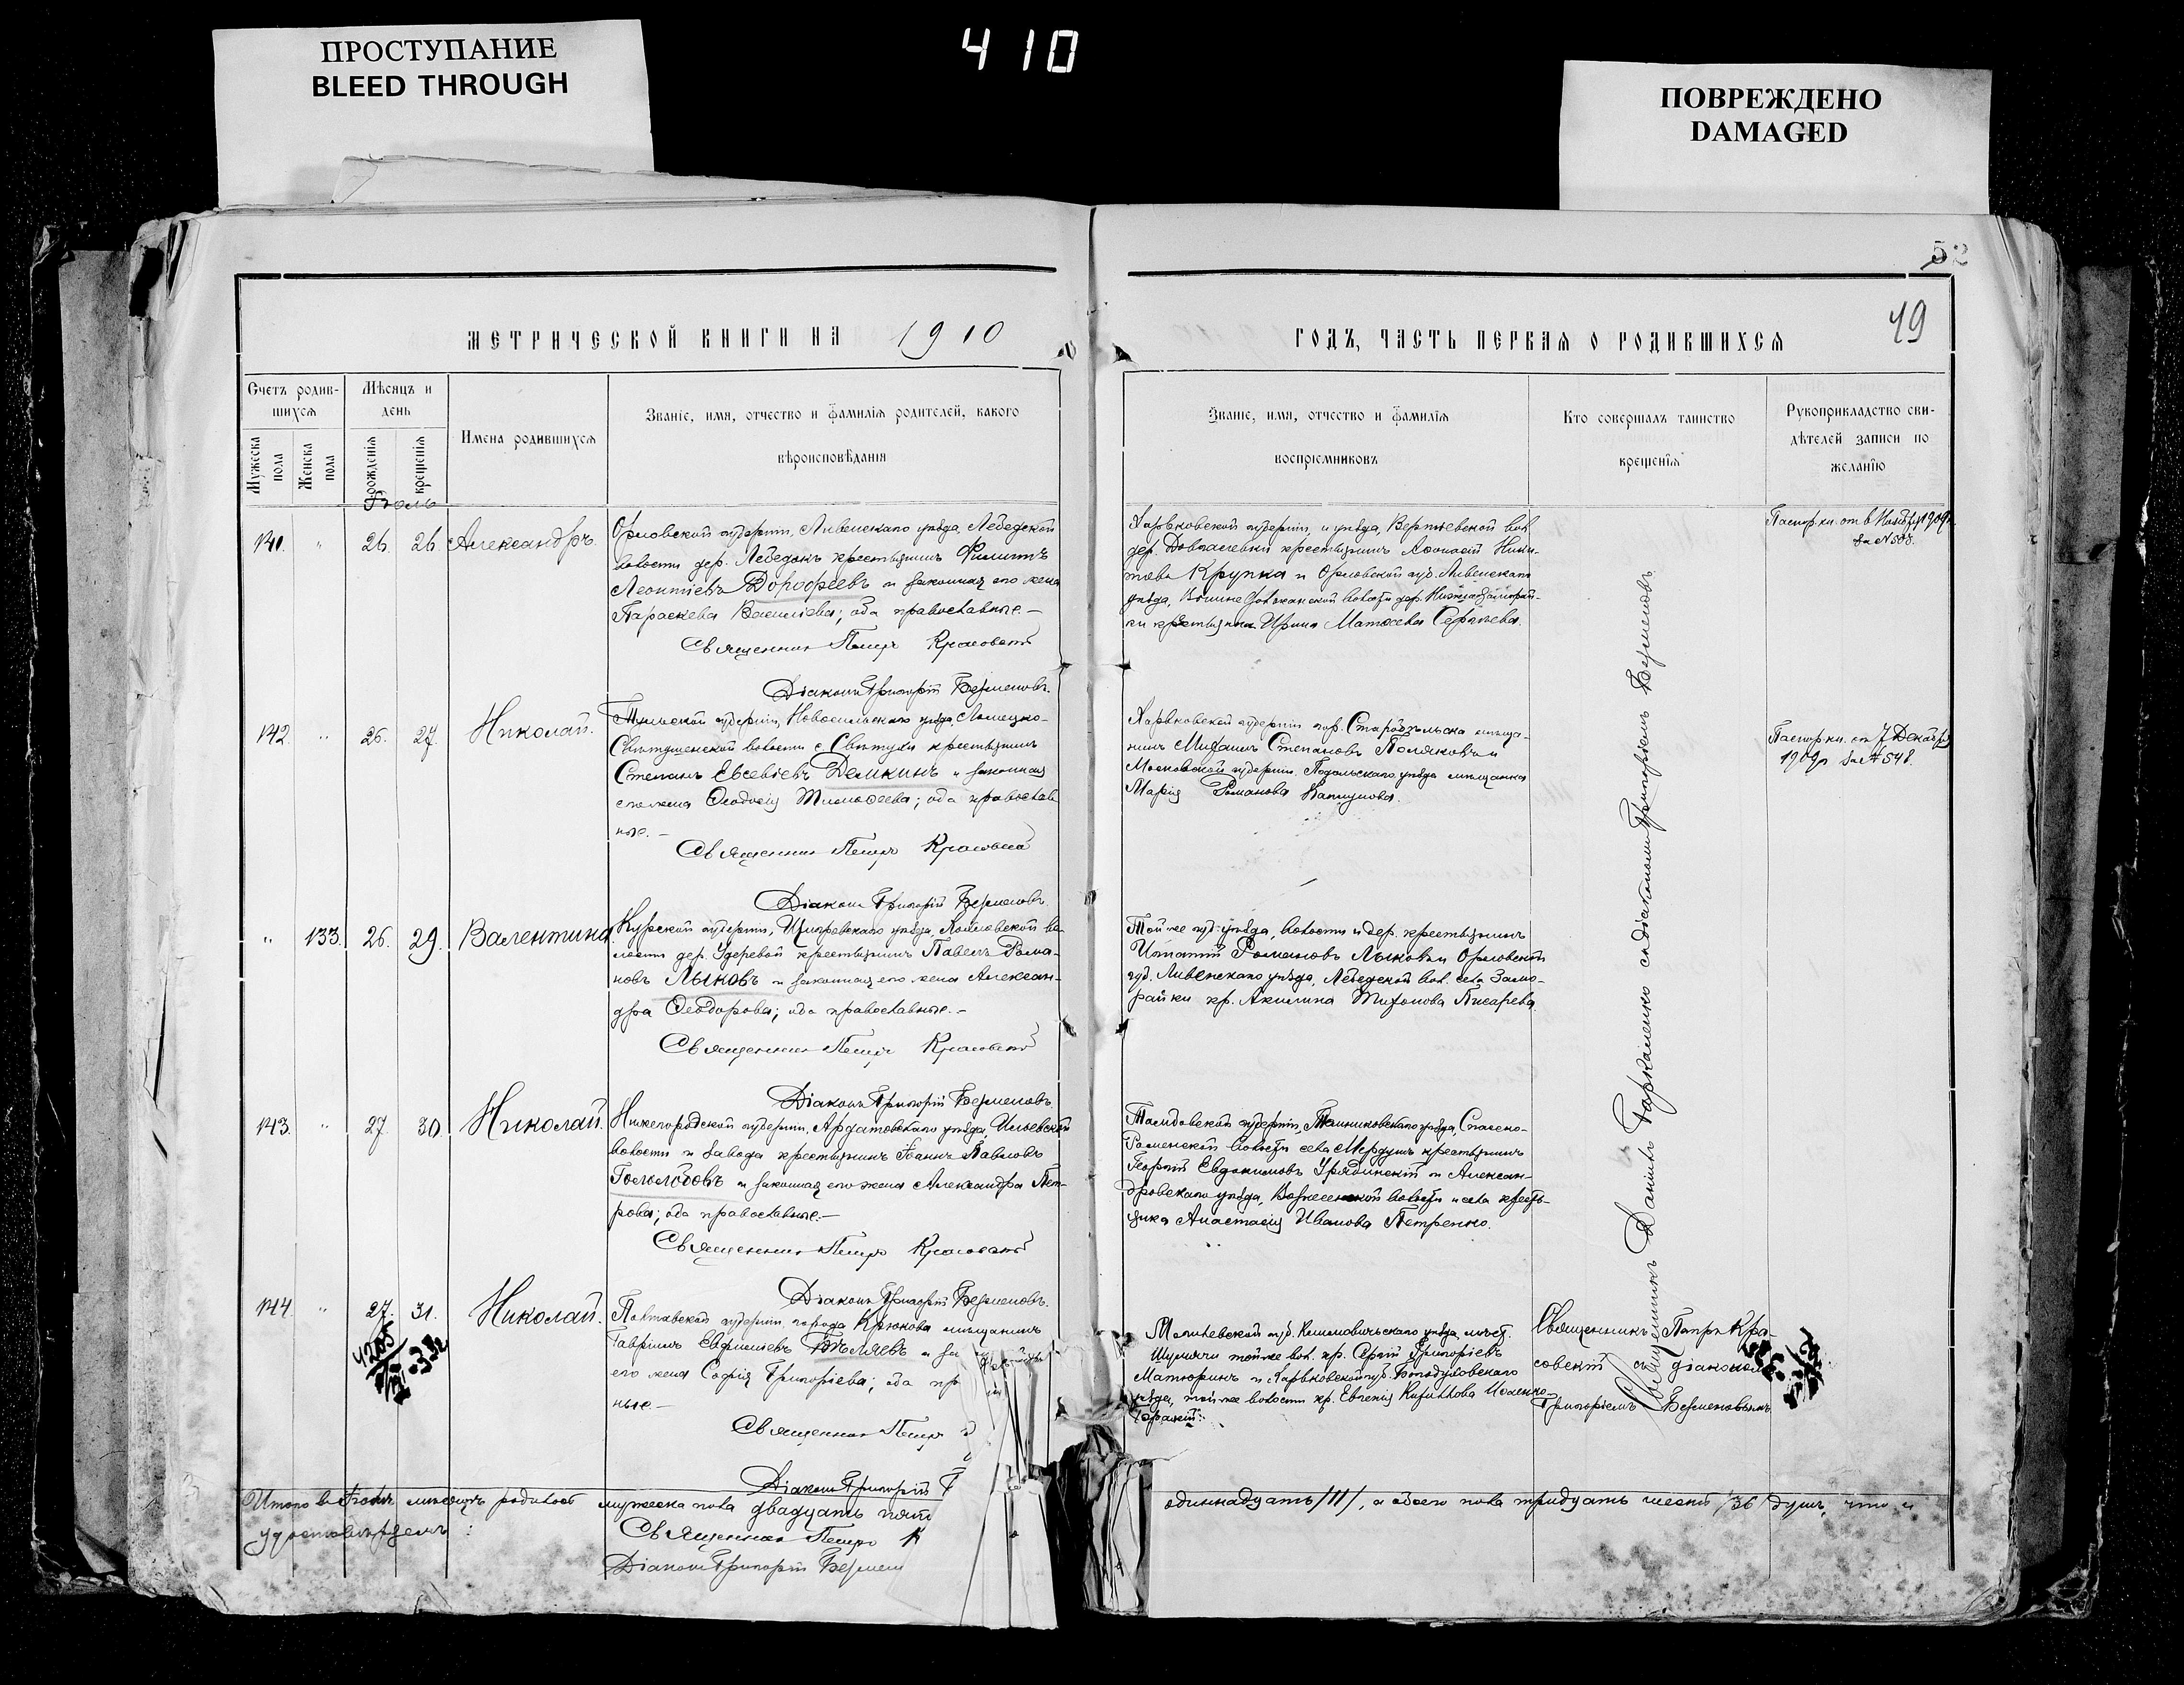 ПРОСТУПАНИЕ
BLEED THROUGH
410
ПОВРЕЖДЕНО
DAMAGED
52
49
МЕТРИЧЕСКОЙ КНИГИ НА 1910
ГОДЪ, ЧАСТЬ ПЕРВАЯ О РОДИВШИХСЯ
Счетъ родив-
шихся
Мужеска пола
Женска пола
Мѣсяцъ и
день
рождения
крещенія
Имена родившихся
Званіе, имя, отчество и фамилія родителей, какого
вѣроисповѣданія
Званіе, имя, отчество и фамилія
воспріемниковъ
Кто совершалъ таинство
крещенія
Рукоприкладство сви-
дѣтелей записи по
желанію
Іюль
141. " 26. 26. Александръ.
Орловской губерніи, Ливенскаго уѣзда, Лебедской
волости дер. Лебедокъ крестьянинъ Филиппъ
Леонтіевъ Дорофеевъ и законная его жена
Параскева Василіева; оба православные.-
Священникъ Петръ Красовскій
Діаконъ Григорій Безменовъ.
Харьковской губерніи, и уѣзда, Вол
дер. крестьянинъ Никитовъ Крупка и Орловской губ. Ливенскаго
уѣзда, волости дер.
крестьянка Ирина Матѳеева Сергѣева.
Паспор. кн. от 6 Ноября 1909г.
за № 503.
142. " 26. 27. Николай.
Тульской губерніи, Новосильскаго уѣзда, Ломецко-
волости с. крестьянинъ
Степанъ Евсевіевъ Демкинъ и законная
его жена Ѳеодосія Тимоѳеева; оба православ
ные.-
Священникъ Петръ Красовскій
Діаконъ Григорій Безменовъ.
Харьковской губерніи гор. Старобѣльска мѣща-
нинъ Михаилъ Степановъ Поляковъ и
Московской губерніи. Подольскаго уѣзда мѣщанка
Марія Романова
Паспор. кн. от 7 Декабря
1909г за № 548.
" 133. 26. 29. Валентина
Курской губерніи, Щигровскаго уѣзда, во-
лости дер. Удеревой крестьянинъ Павелъ Рома-
новъ Лыковъ и законная его жена Алексан-
дра Ѳеодорова; оба православные.-
Священникъ Петръ Красовскій
Діаконъ Григорій Безменовъ.
Той же губ. уѣзда, волости и дер. крестьянинъ
Игнатій Романовъ Лыковъ и Орловской
губ. Ливенскаго уѣзда, Лебедской вол. села Замо-
райки кр. Акилина Тихонова Писарева.
143. " 27. 30. Николай.
Нижегородской губерніи, Ардатовскаго уѣзда, Ильевской
волости и завода крестьянинъ Іоаннъ Павловъ
Гололобовъ и законная его жена Александра Пет-
рова; оба православные.-
Священникъ Петръ Красовскій
Діаконъ Григорій Безменовъ.
Тамбовской губерніи, Темниковскаго уѣзда, Спасско-
Раменской волости села Мердушъ крестьянинъ
Георгій Евдокимовъ Урядинскій и Алексан-
дровскаго уѣзда, Вознесенской волости и села кресть-
янка Анастасія Иванова Петренко.
Священникъ Даніилъ Пархоменко съ діакономъ Григоріемъ Безменовымъ
144. " 27. 31. Николай.
Полтавской губерніи, города Крюкова мѣщанинъ
Гавріилъ Евфиміевъ Бѣляевъ и за
его жена Софія Григоріева; оба пр
ные.-
Священникъ Петръ
Діаконъ Григорій
Могилевской губ. Климовичскаго уѣзда, мѣст.
Шумячи той же вол. кр. Сергій Григоріевъ
Матюринъ и Харьковской губ. Богодуховскаго
уѣзда, той же волости кр. Евгенія Кириллова
Священникъ Петръ Кра-
совскій съ діакономъ
Григоріемъ Безменовымъ.
Итого въ Іюлѣ мѣсяцѣ родилось мужеска пола двадцать пять
одиннадцать /11/, а обоего пола тридцать шесть /36/ душъ, что и
удостовѣряемъ:
Священникъ Петръ К
Діаконъ Григорій Безмен